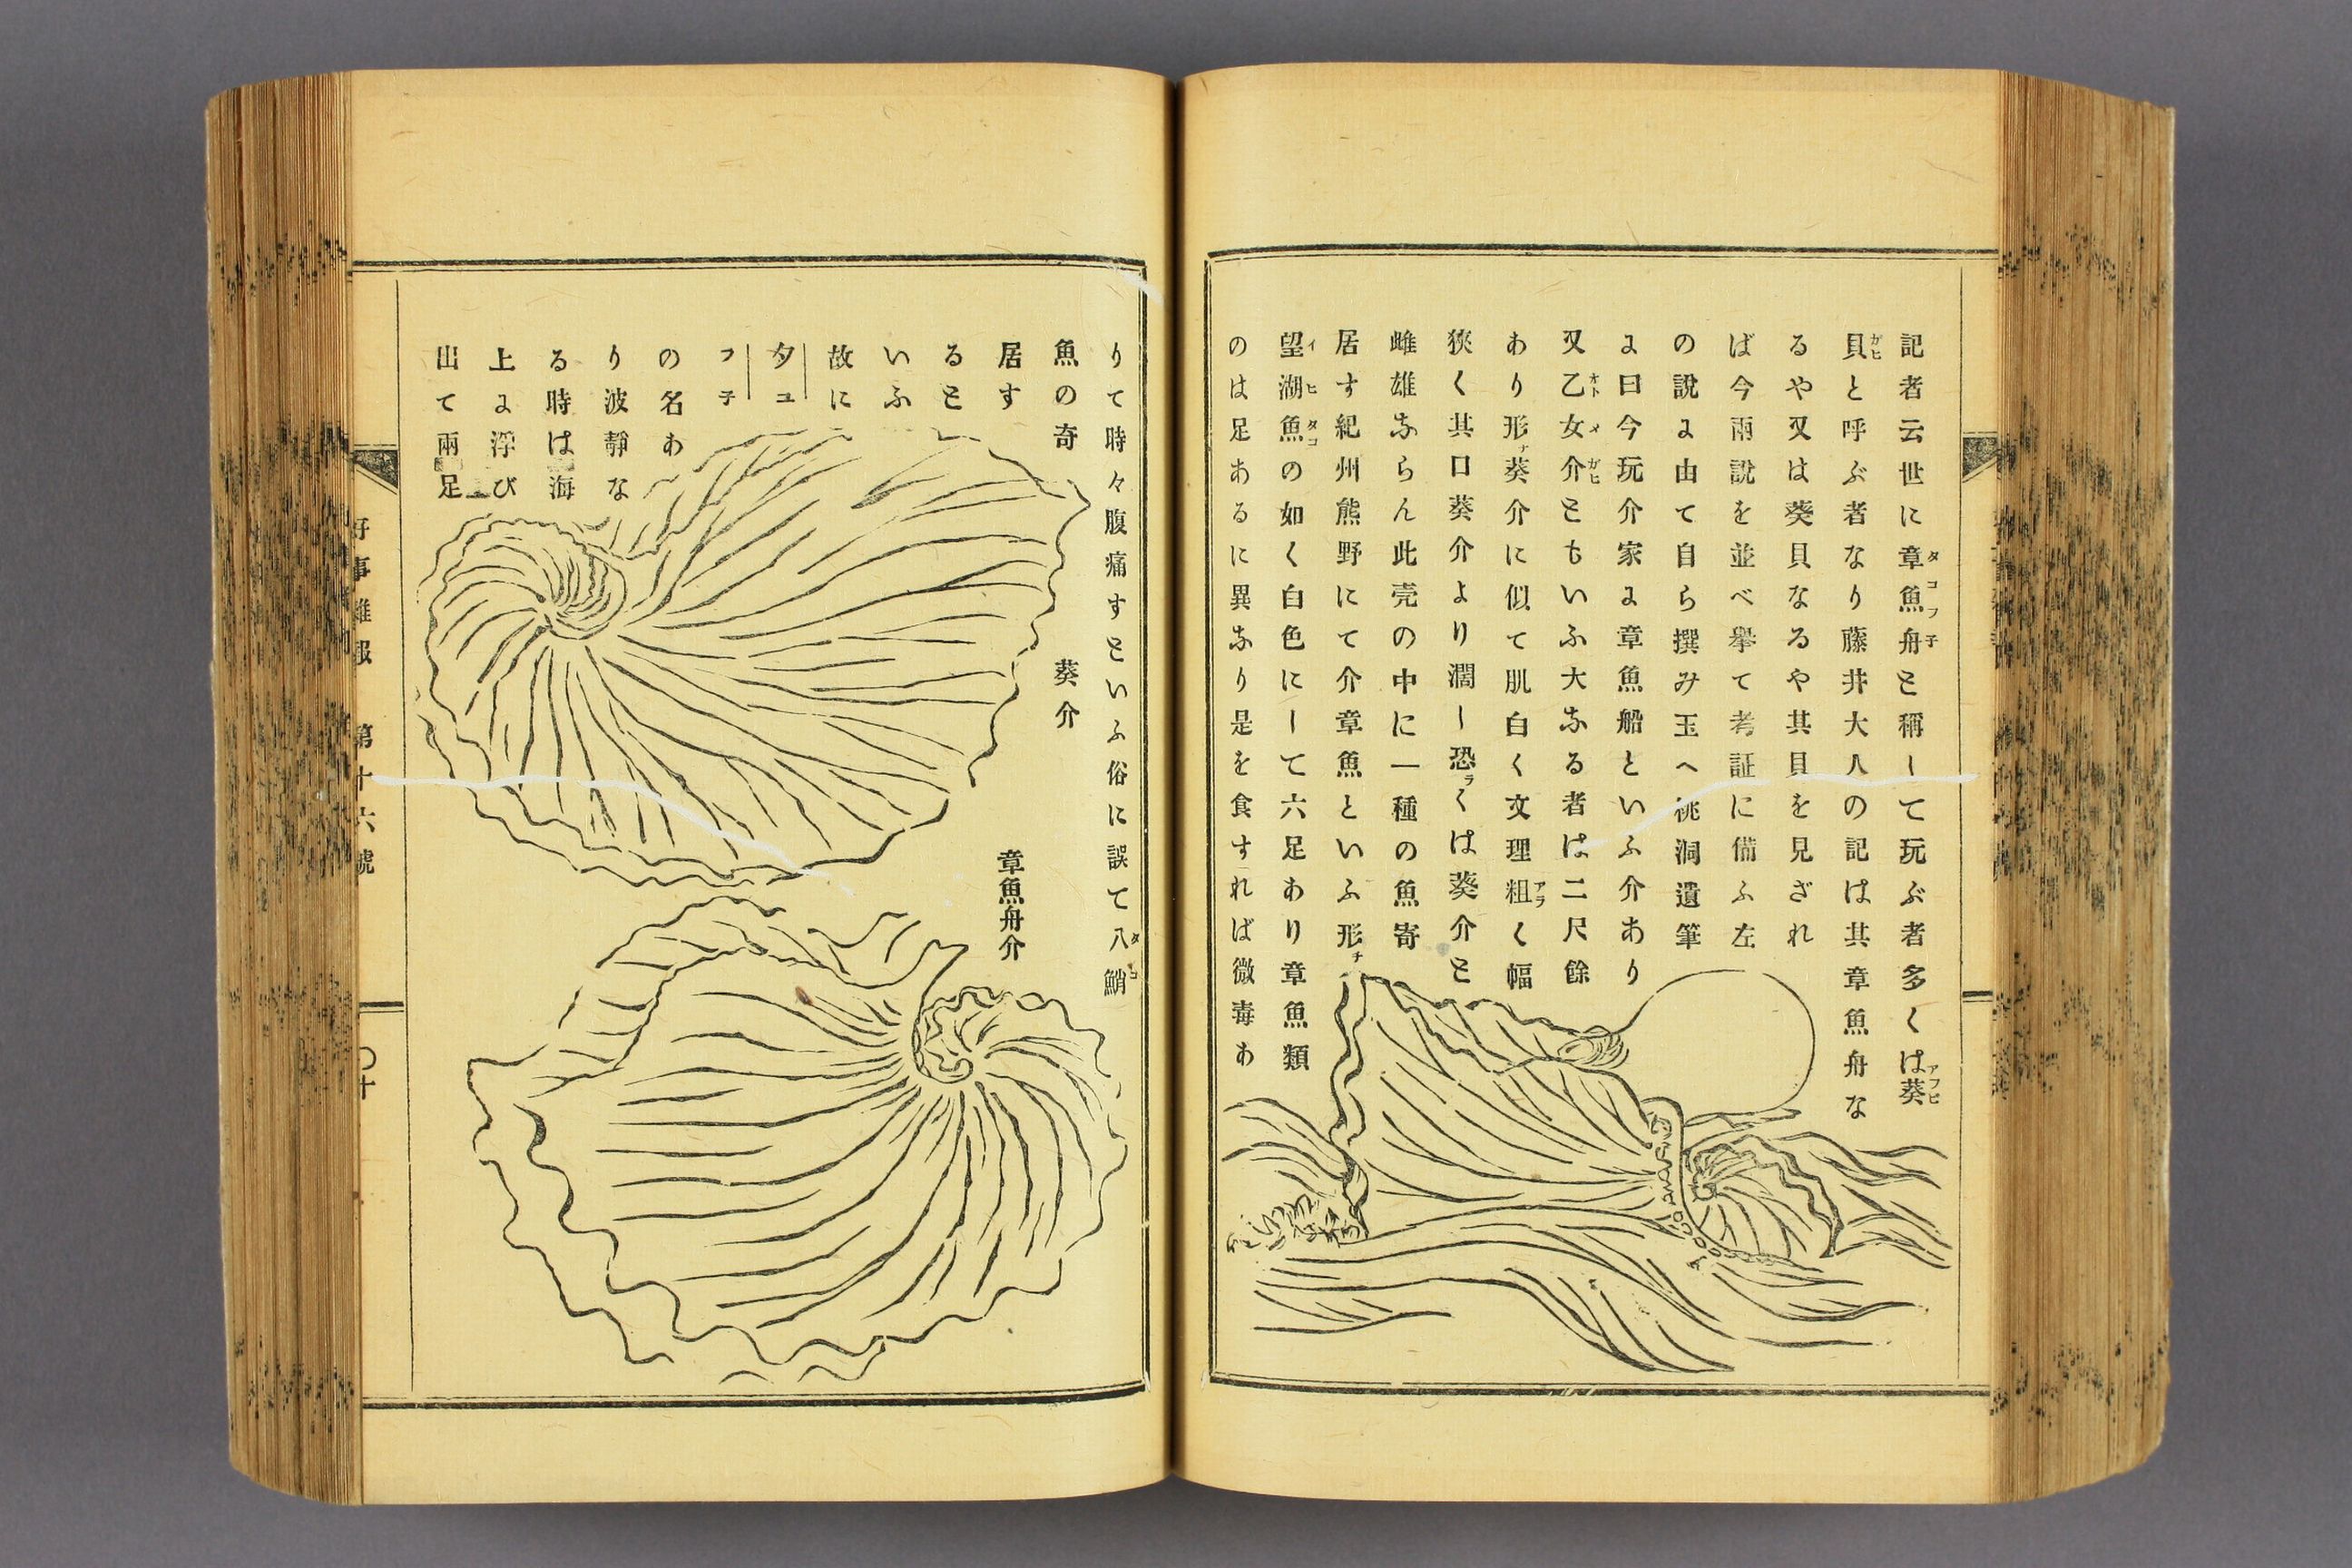 記者云世に章魚舟と稱して玩ぶ者多くは葵
貝と呼ぶ者なり藤井大人の記は其章魚舟な
るや又は葵貝なるや其貝を見ざれ
ば今兩說を並べ擧て考証に備ふ左
の說に由て自ら撰み玉へ桃洞遺筆
に曰今玩介家に章魚船といふ介あり
又乙女介ともいふ大なる者は二尺餘
あり形葵介に似て肌白く文理粗く幅
狹く其口葵介より濶し恐くは葵介と
雌雄ならん此壳の中に一種の魚寄
居す紀州熊野にて介章魚といふ形
望湖魚の如く白色にして六足あり章魚類
のは足あるに異なり是を食すれば微毒あ
りて時々腹痛すといふ俗に誤て八鮹
魚の奇
居す
ると
いふ
故に
タコ
フ子
の名あ
り波靜な
る時は海
上に浮び
出て兩足
葵介
章魚舟介
好事雜報　第十六號
〇十